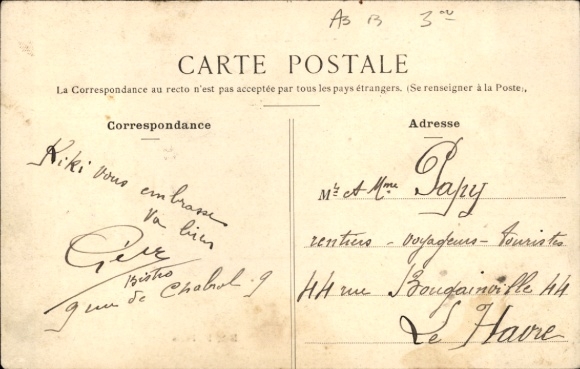 A3 B 3 00
CARTE POSTALE
La Correspondance au recto n'est pas acceptée par tous les pays étrangers. (Se renseigner à la Poste),
Correspondance
Kiki vous embrasse
Va bien
Bistro
9 rue de Chabrol . 9
Adresse
Mr et Mme Papy
rentiers - voyageurs - touristes
44 rue Bougainville 44
Le Havre